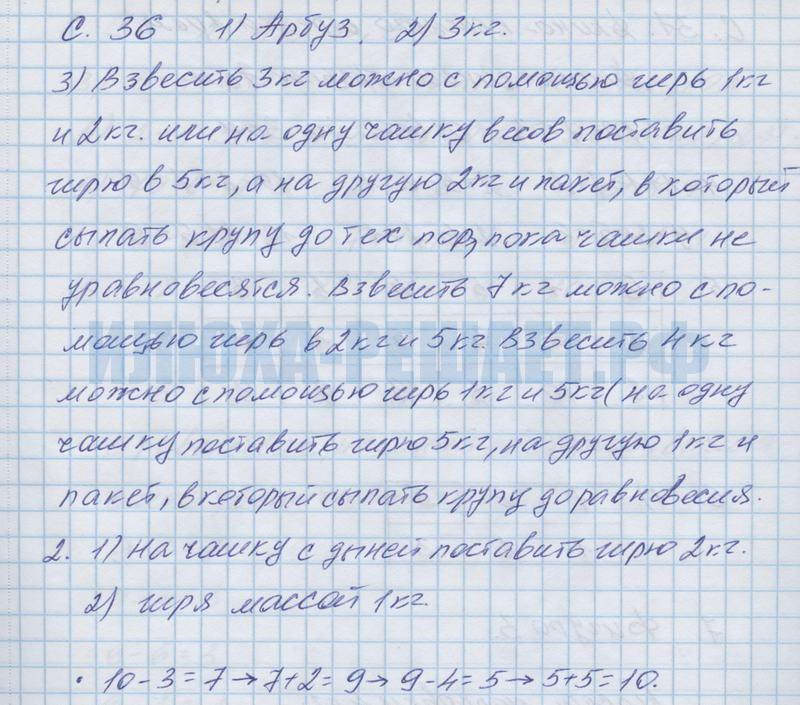 С. 36 1) Арбуз. 2) 3кг.
3) Взвесить 3кг можно с помощью гирь 1кг
и 2кг. или на одну чашку весов поставить
гирю в 5кг, а на другую 2кг и пакет, в который
сыпать крупу до тех пор, пока чашки не
уравновесятся. Взвесить 7кг можно с по-
мощью гирь в 2кг и 5кг. Взвесить 4кг
можно с помощью гирь 1кг и 5кг (на одну
чашку поставить гирю 5кг, на другую 1кг и
пакет, в который сыпать крупу до равновесия.
2. 1) На чашку с дыней поставить гирю 2кг.
2) гиря массой 1кг.
• 10-3=7→7+2=9→9-4=5→5+5=10.
ИЛЮХА-РЕШАЕТ.РФ